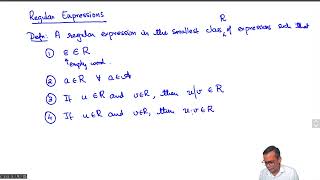 Regular Expressions
Defn: A regular expression in the smallest class R of expressions such that
① ε ∈ R
↑ empty word.
② a ∈ R ∀ a ∈ A
③ If u ∈ R and v ∈ R, then u/v ∈ R
④ If u ∈ R and v ∈ R, then u.v ∈ R